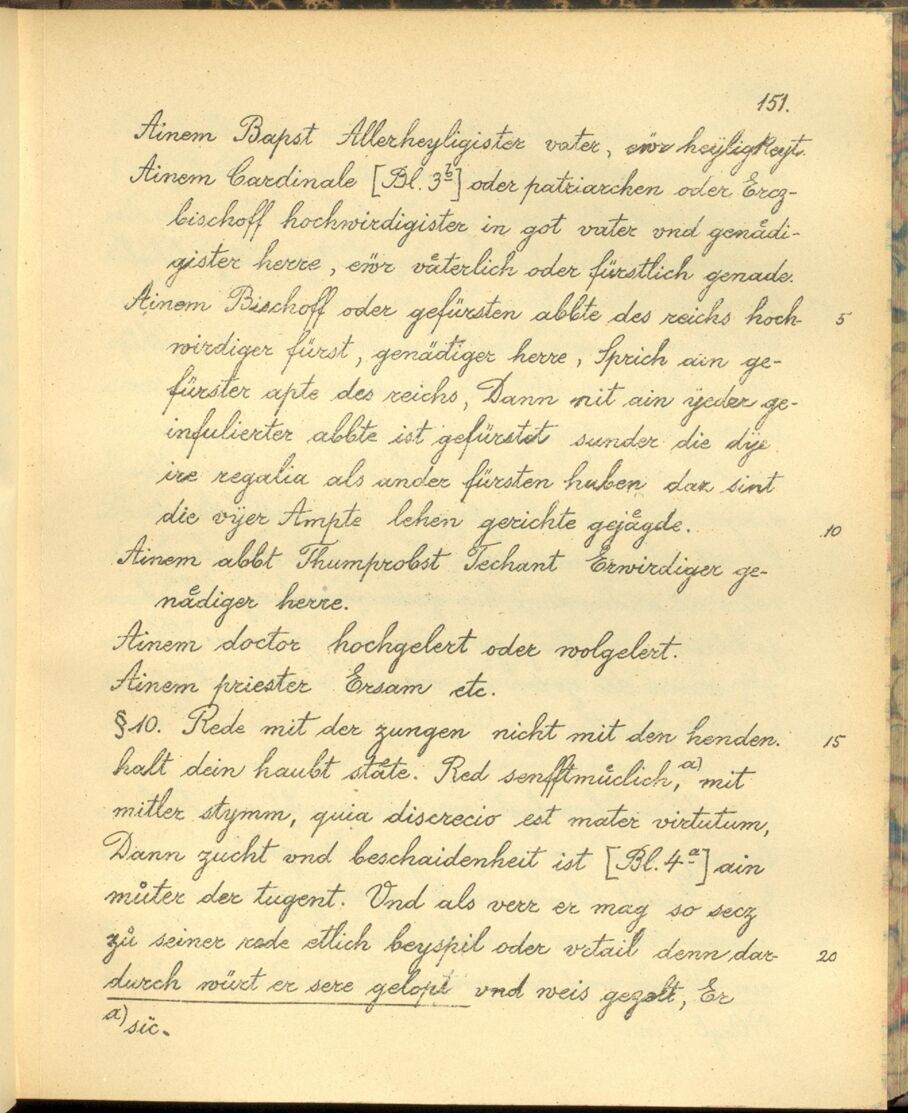 151.
Ainem Bapst Allerheyligister vater, eẅr heÿligkeyt.
Ainem Cardinale [Bl. 3ᵇ] oder patriarchen oder Ercz-
bischoff hochwirdigister in got vater vnd genådi-
gister herre, eẅr våterlich oder fürstlich genade.
Ainem Bischoff oder gefürsten abbte des reichs hoch- 5
wirdiger fürst, genädiger herre, Sprich ain ge-
fürster apte des reichs, Dann nit ain ÿeder ge-
infulierter abbte ist gefürstet sunder die dÿe
ire regalia als ander fürsten haben daz sint
die vÿer Ampte lehen gerichte gejågde. 10
Ainem abbt Thumprobst Techant Erwirdiger ge-
nådiger herre.
Ainem doctor hochgelert oder wolgelert.
Ainem priester Ersam etc.
§ 10. Rede mit der zungen nicht mit den henden. 15
halt dein haubt ståte. Red senfftmůclich,ᵃ⁾ mit
mitler stymm, quia discrecio est mater virtutum,
Dann zucht vnd beschaidenheit ist [Bl. 4ᵃ] ain
můter der tugent. Vnd als verr er mag so secz
zů seiner rede etlich beyspil oder vrtail denn dar- 20
durch würt er sere gelopt vnd weis gezelt, Er
a) sic.